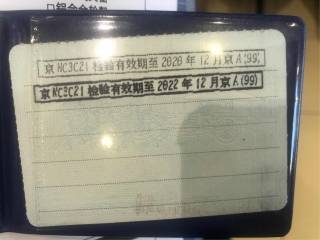 口铝合金轮毂
京NC3C21检验有效期至2020年12月京A(99)
京NC3C21检验有效期至2022年12月京A(99)